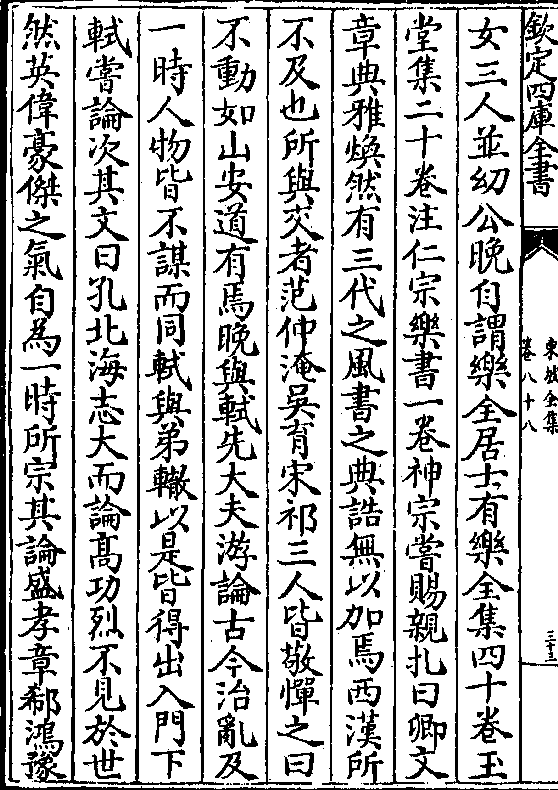 欽定四庫全書
東坡全集
卷八十八
三十三
女三人並幼公晚自謂樂全居士有樂全集四十卷玉
堂集二十卷注仁宗樂書一卷神宗嘗賜親札曰卿文
章典雅煥然有三代之風書之典誥無以加焉西漢所
不及也所與交者范仲淹吳育宋祁三人皆敬憚之曰
不動如山安道有焉晚與軾先大夫游論古今治亂及
一時人物皆不謀而同軾與弟轍以是皆得出入門下
軾嘗論次其文曰孔北海志大而論髙功烈不見於世
然英偉豪傑之氣自為一時所宗其論盛孝章郗鴻豫